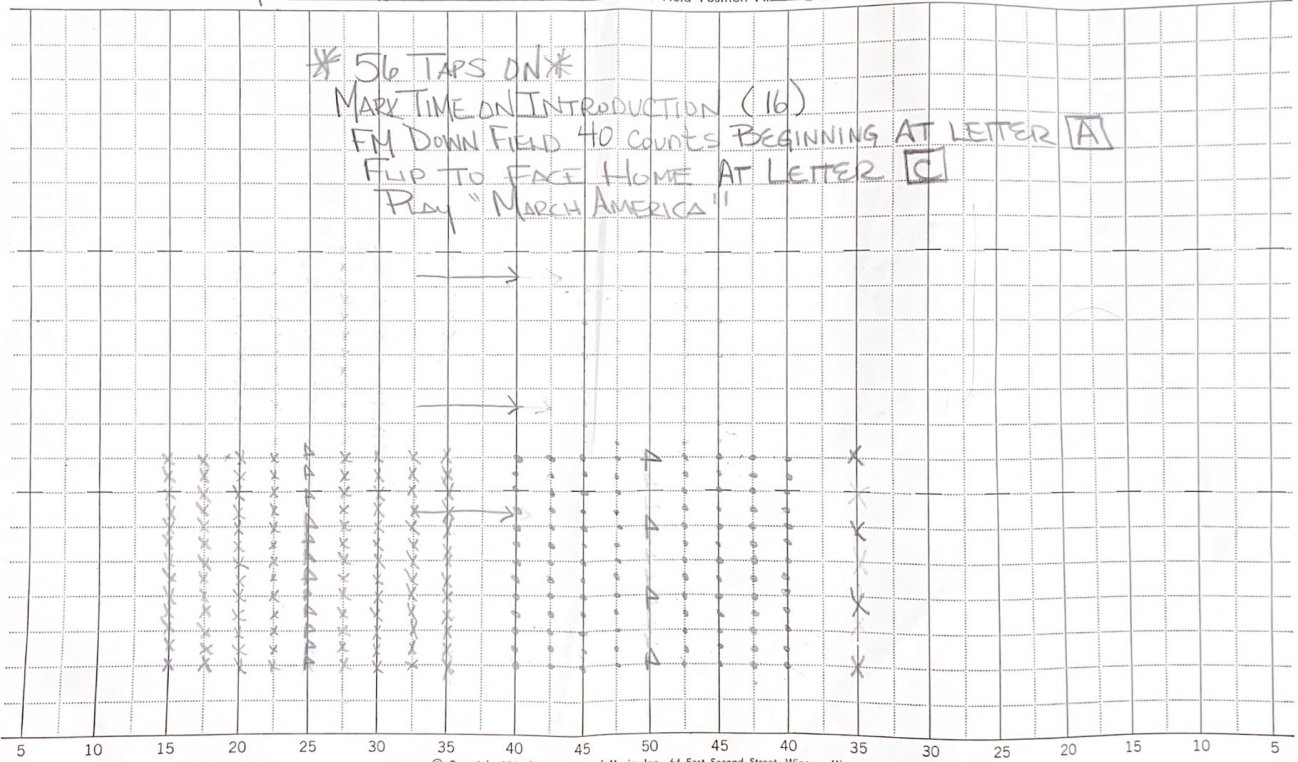 * 56 TAPS ON *
MARK TIME ON INTRODUCTION (16)
FM DOWN FIELD 40 COUNTS BEGINNING AT LETTER A
FLIP TO FACE HOME AT LETTER C
PLAY "MARCH AMERICA"
5 10 15 20 25 30 35 40 45 50 45 40 35 30 25 20 15 10 5